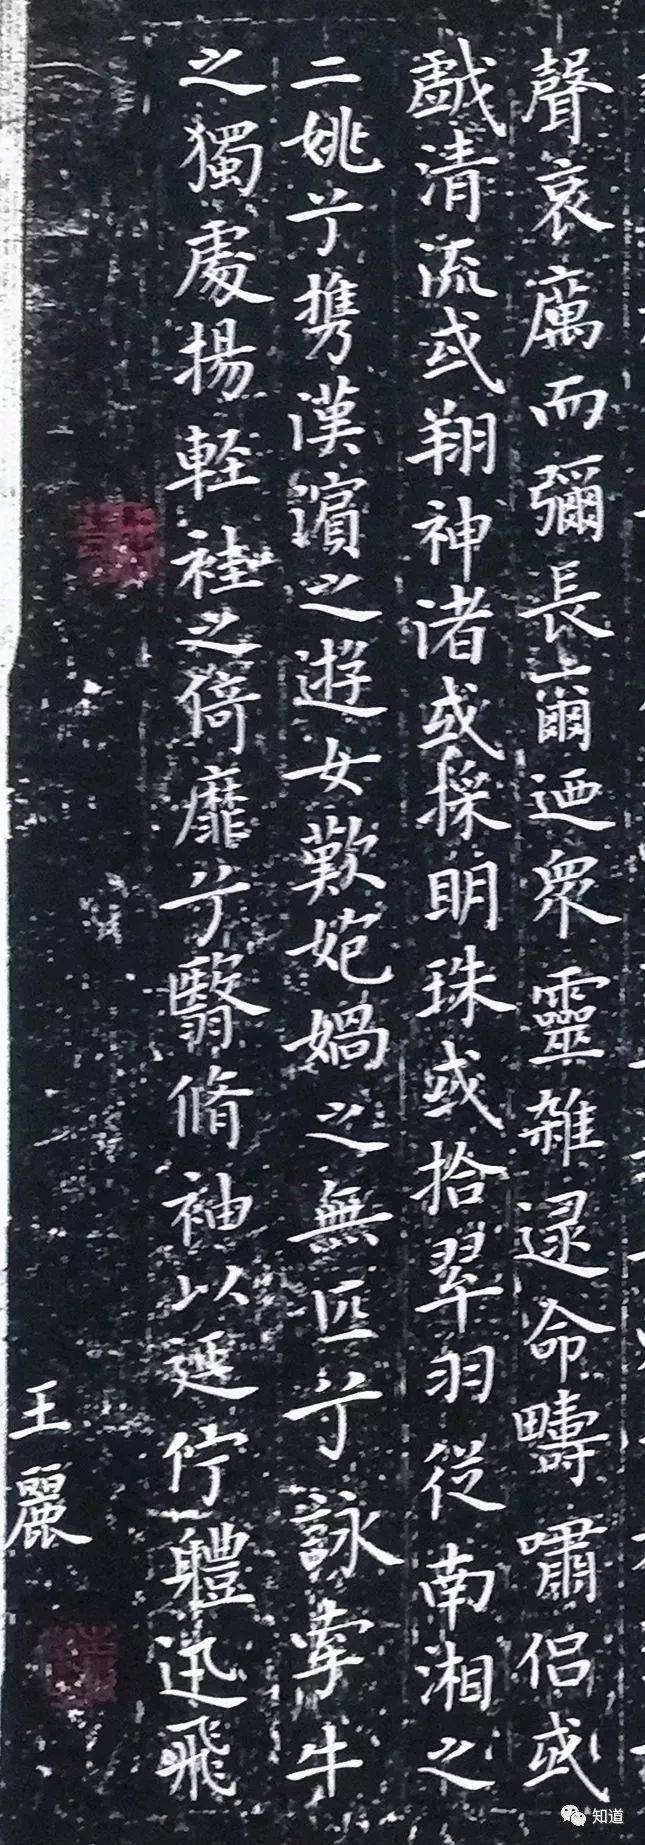 聲哀厲而彌長爾迺衆靈雜遝命疇嘯侣或
戲清流或翔神渚或採明珠或拾翠羽從南湘之
二姚兮携漢濵之遊女歎媤媧之無匹兮詠牽牛
之獨處揚軽袿之倚靡兮翳脩袖以延佇軆迅飛
王麗
知道